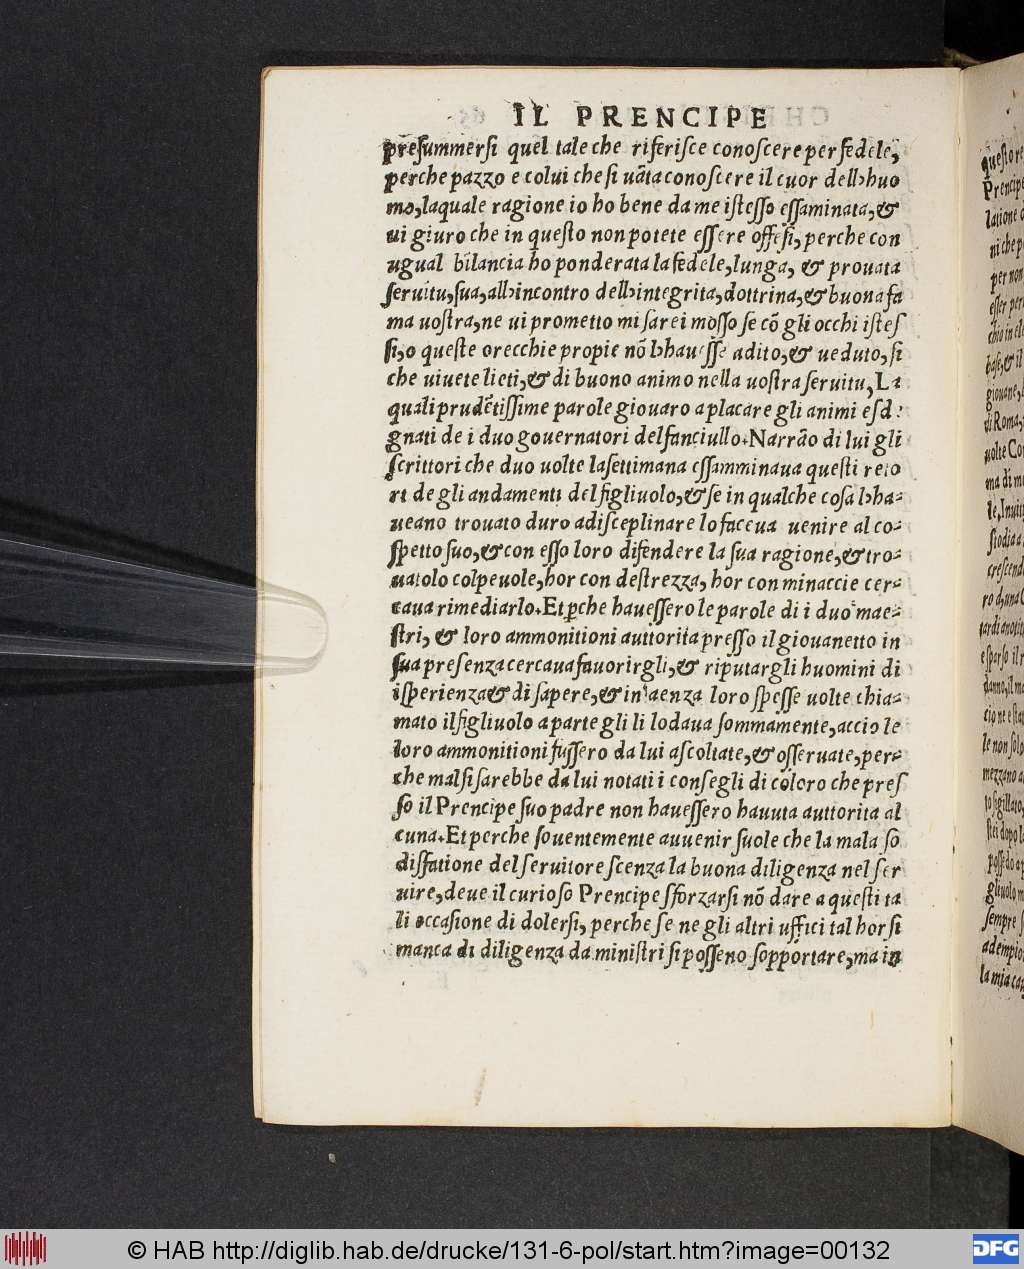 IL PRENCIPE
presummersi quel tale che riferisce conoscere per fedele,
perche pazzo e colui che si uãta conoscere il cuor dell'huo
mo, laquale ragione io ho bene da me istesso essaminata, &
ui giuro che in questo non potete essere offesi, perche con
ugual bilancia ho ponderata la fedele, lunga, & prouata
seruitu, sua, all'incontro dell'integrita, dottrina, & buona fa
ma uostra, ne ui prometto mi sarei mosso se cõ gli occhi istes
si, o queste orecchie propie nõ l'hauesse adito, & ueduto, si
che uiuete lieti, & di buono animo nella uostra seruitu, La
quali prudẽtissime parole giouaro a placare gli animi esd
gnati de i duo gouernatori del fanciullo. Narrão di lui gli
scrittori che duo uolte la settimana essamminaua questi reto
ri de gli andamenti del figliuolo, & se in qualche cosa l'ha-
ueano trouato duro a disceplinare lo faceua uenire al co-
spetto suo, & con esso loro difendere la sua ragione, & tro-
uatolo colpeuole, hor con destrezza, hor con minaccie cer-
caua rimediarlo. Et p̱che hauessero le parole di i duo mae-
stri, & loro ammonitioni auttorita presso il giouanetto in
sua presenza cercaua fauorirgli, & riputargli huomini di
isperienza & di sapere, & in loro spesse uolte chia-
mato il figliuolo a parte gli li lodaua sommamente, accio le
loro ammonitioni fussero da lui ascoltate, & osseruate, per-
che mal si sarebbe da lui notati i consegli di coloro che pres
so il Prencipe suo padre non hauessero hauuta auttorita al
cuna. Et perche souentemente auuenir suole che la mala so
disfatione del seruitore scenza la buona diligenza nel ser
uire, deue il curioso Prencipe sforzarsi nõ dare a questi ta
li occasione di dolersi, perche se ne gli altri uffici tal hor si
manca di diligenza da ministri si posseno sopportare, ma in
questo re
Prencipe
latione
ni che p
per non
esser per
chio in
base, & il
giouane,
di Roma,
uolte Con
ma di
le, Inuit
stodia a
crescend
ro d'una
tardi
esparso il
danno, il
cio ne e
le non solo
mezzano
to sigillato
stei dopo
possedo a
gliuolo
sempre
adempio
la mia
© HAB http://diglib.hab.de/drucke/131-6-pol/start.htm?image=00132
DFG